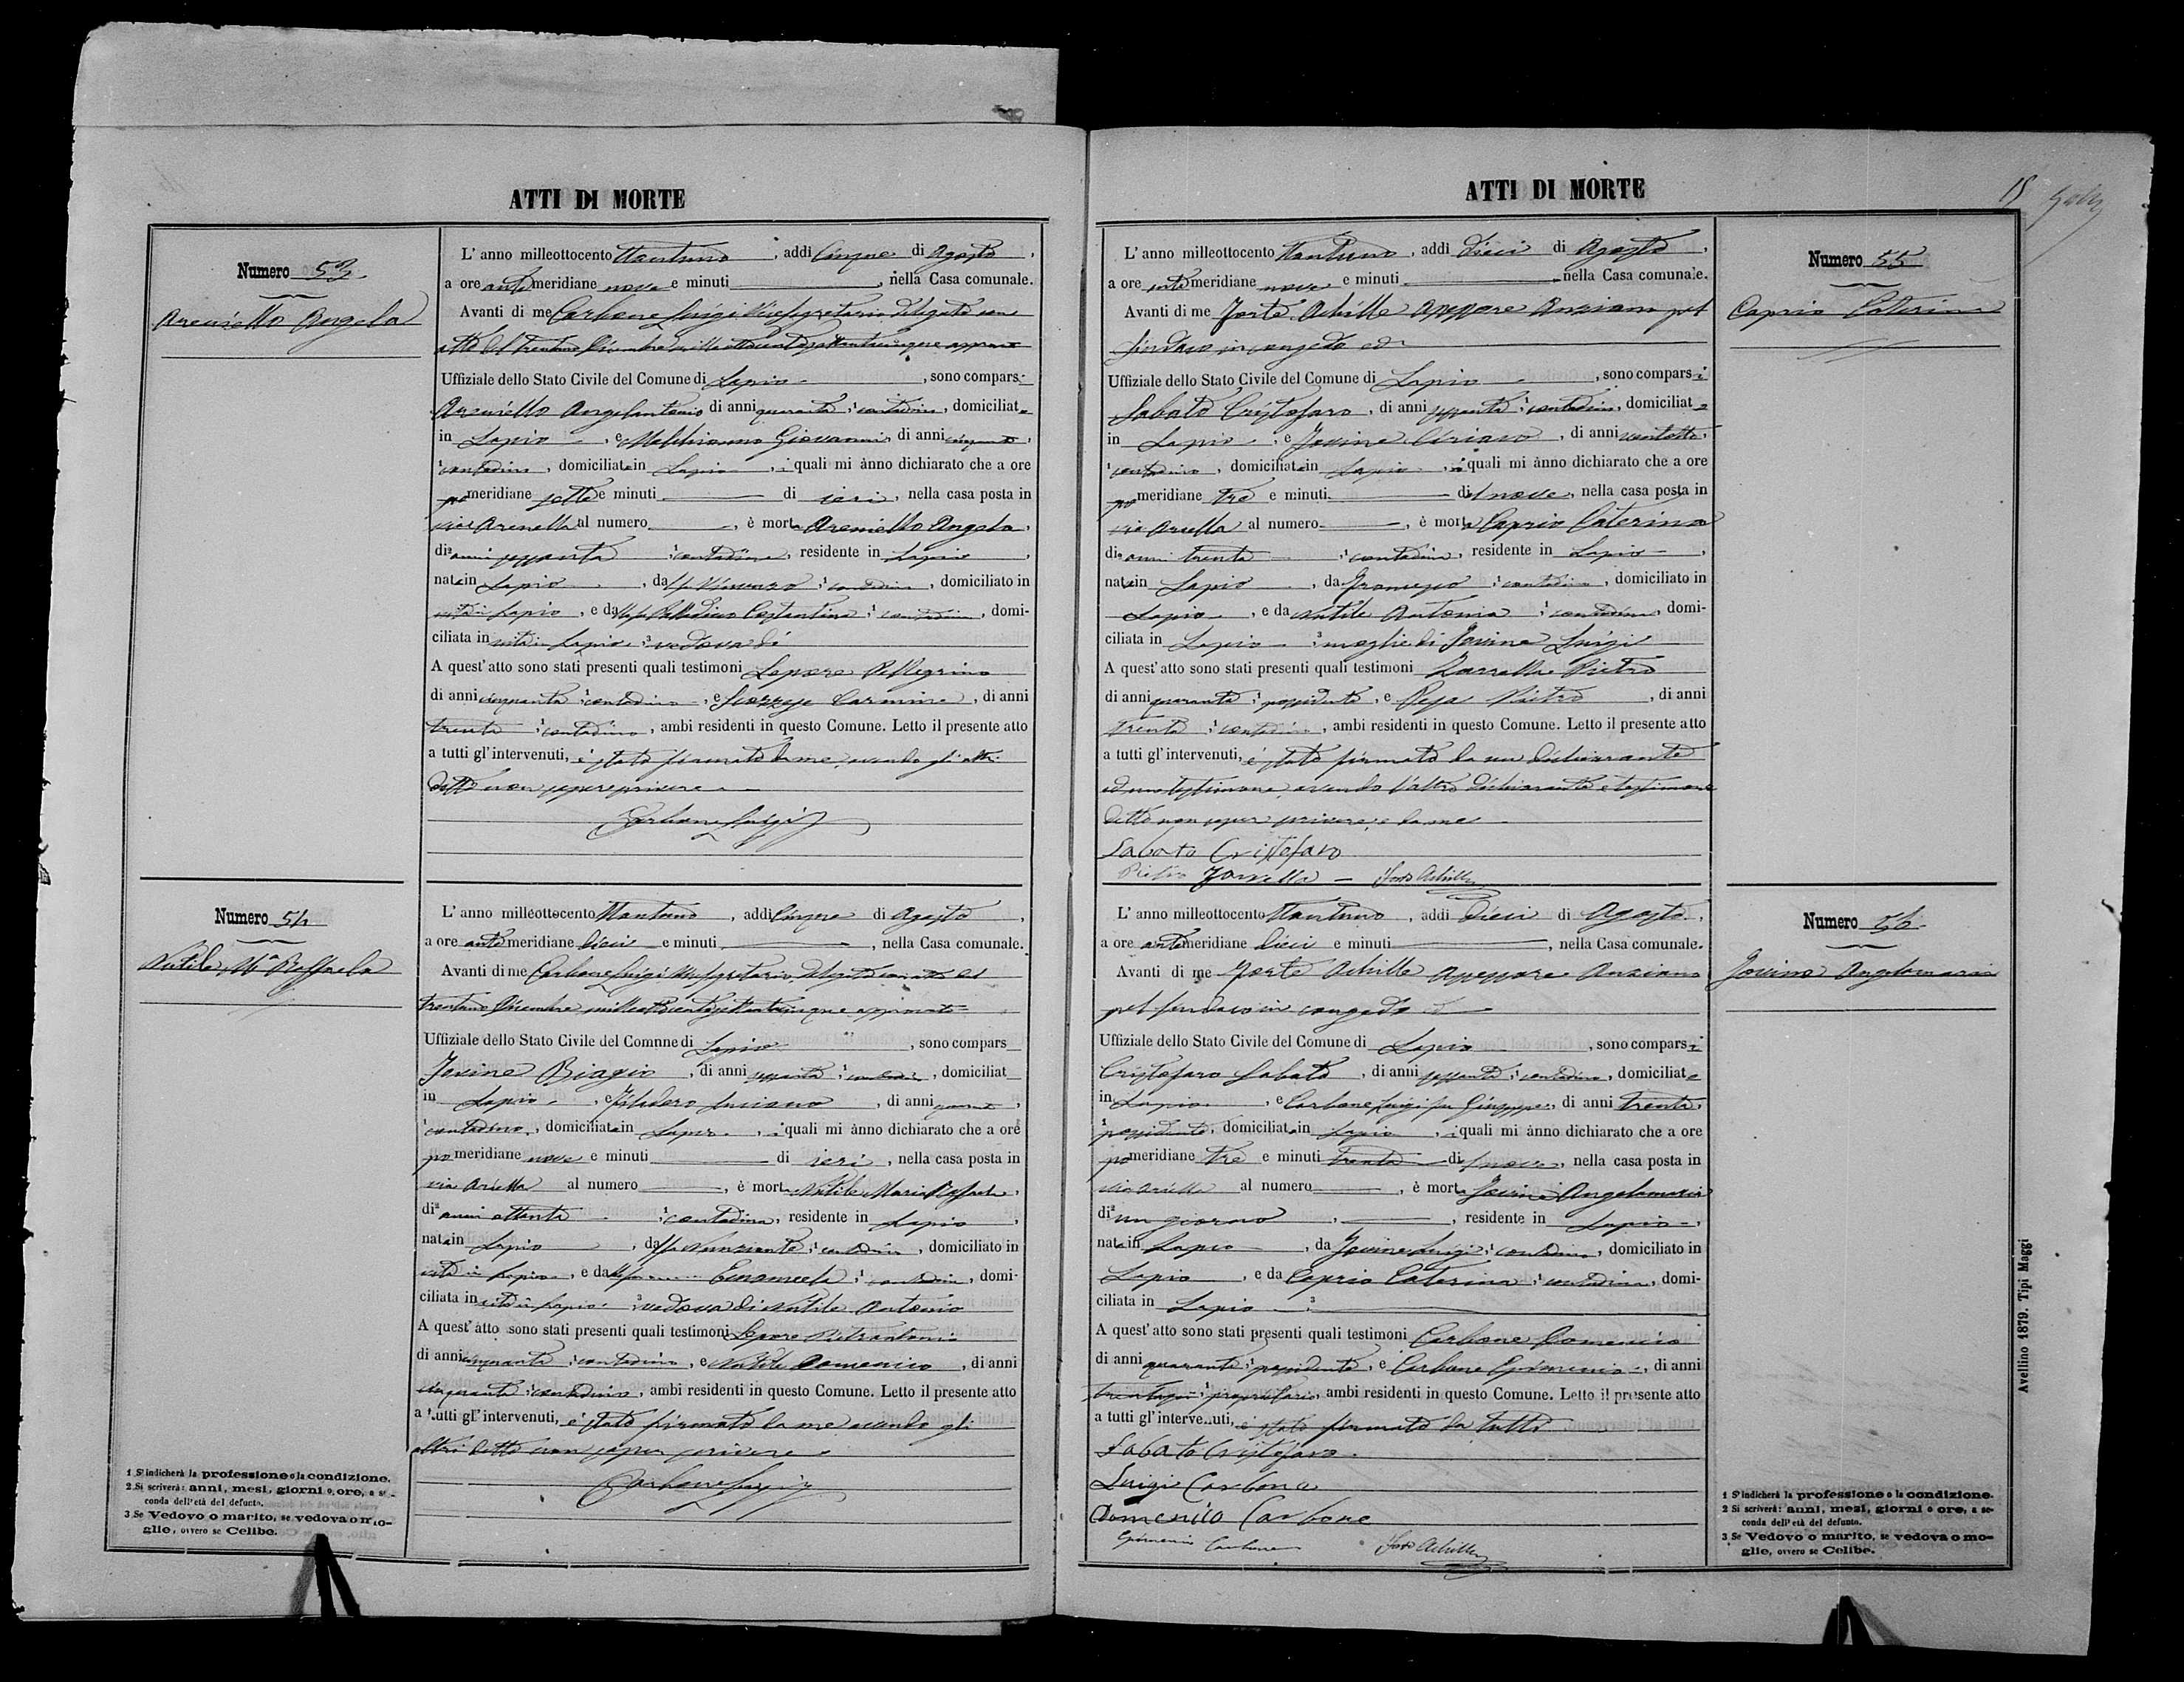 ATTI DI MORTE
Numero 53
Areniello Angela
L' anno milleottocento Ottantuno, addi Cinque di Agosto,
a ore antemeridiane nove e minuti , nella Casa comunale.
Avanti di me Carbone Luigi Vicesegretario delegato con
atto del trentuno Dicembre milleottocentosettantacinque approvato
Uffiziale dello Stato Civile del Comune di Lapio , sono compars i
Areniello Angelantonio di anni quaranta, contadino, domiciliato
in Lapio , e Melchionno Giovanni, di anni cinquanta,
contadino, domiciliato in Lapio , i quali mi ànno dichiarato che a ore
pomeridiane sette e minuti di ieri, nella casa posta in
via Arenella al numero , è morta Areniello Angela,
di anni sessanta , contadina, residente in Lapio ,
nata in Lapio , da fu Vincenzo , contadino, domiciliato in
vita in Lapio , e da fu Palladino Costantina, contadina, domi-
ciliata in vita in Lapio , vedova di
A quest' atto sono stati presenti quali testimoni Lepore Pellegrino
di anni cinquanta, contadino, e Carmine, di anni
trenta, contadino, ambi residenti in questo Comune. Letto il presente atto
a tutti gl' intervenuti, è stato firmato da me avendo gli altri
detto non sapere scrivere
Carbone Luigi
Numero 54
Nutile Mª Raffaela
L' anno milleottocento Ottantuno, addi Cinque di Agosto,
a ore antemeridiane dieci e minuti , nella Casa comunale.
Avanti di me Carbone Luigi Vicesegretario delegato con atto del
trentuno Dicembre milleottocentosettantacinque approvato
Uffiziale dello Stato Civile del Comune di Lapio , sono compars
Jovine Biagio, di anni sessanta, contadino, domiciliat
in Lapio , e Luciano, di anni
contadino, domiciliato in Lapio , i quali mi ànno dichiarato che a ore
pomeridiane nove e minuti di ieri, nella casa posta in
via Ariella al numero , è morta Nutile Maria Raffaela,
di anni ottanta , contadina, residente in Lapio ,
nata in Lapio , da fu Nunziante, contadino, domiciliato in
vita in Lapio , e da fu Emanuela, contadina, domi-
ciliata in vita in Lapio , vedova di Nutile Antonio
A quest' atto sono stati presenti quali testimoni Lepore Pietrantonio
di anni cinquanta, contadino, e Nutile Domenico, di anni
cinquanta, contadino, ambi residenti in questo Comune. Letto il presente atto
a tutti gl' intervenuti, è stato firmato da me avendo gli
altri detto non saper scrivere
Carbone Luigi
1 S' indicherà la professione o la condizione.
2 Si scriverà: anni, mesi, giorni o ore, a se-
conda dell' età del defunto.
3 Se Vedovo o marito, se vedova o mo-
glie, ovvero se Celibe.
ATTI DI MORTE
15
L' anno milleottocento Ottantuno, addi dieci di Agosto,
a ore antemeridiane nove e minuti , nella Casa comunale.
Avanti di me Forte Achille Assessore Anziano pel
Sindaco in congedo ed
Uffiziale dello Stato Civile del Comune di Lapio , sono compars i
Sabato Cristofaro, di anni sessanta, contadino, domiciliato
in Lapio , e Jovine Ciriaco, di anni ventotto,
contadino, domiciliato in Lapio , i quali mi ànno dichiarato che a ore
pomeridiane tre e minuti del nove, nella casa posta in
via Ariella al numero , è morta Caprio Caterina
di anni trenta , contadina, residente in Lapio ,
nata in Lapio , da Francesco, contadino, domiciliato in
Lapio , e da Nutile Antonia, contadina, domi-
ciliata in Lapio , moglie di Jovine Luigi
A quest' atto sono stati presenti quali testimoni Zarrella Pietro
di anni quaranta, possidente, e Pepa Pietro, di anni
trenta, contadino, ambi residenti in questo Comune. Letto il presente atto
a tutti gl' intervenuti, è stato firmato da un dichiarante
ed uno testimone avendo l'altro dichiarante e testimone
detto non saper scrivere, e da me
Sabato Cristofaro
Pietro Zarrella — Forte Achille
Numero 55
Caprio Caterina
L' anno milleottocento Ottantuno, addi dieci di Agosto,
a ore antemeridiane dieci e minuti , nella Casa comunale.
Avanti di me Forte Achille Assessore Anziano
pel Sindaco in congedo ed
Uffiziale dello Stato Civile del Comune di Lapio , sono compars i
Cristofaro Sabato, di anni sessanta, contadino, domiciliato
in Lapio , e Carbone Luigi fu Giuseppe, di anni trenta,
possidente, domiciliato in Lapio , i quali mi ànno dichiarato che a ore
pomeridiane tre e minuti trenta del nove, nella casa posta in
via Ariella al numero , è morta Jovine Angelamaria
di un giorno , , residente in Lapio ,
nata in Lapio , da Jovine Luigi, contadino, domiciliato in
Lapio , e da Caprio Caterina, contadina, domi-
ciliata in Lapio ,
A quest' atto sono stati presenti quali testimoni Carbone Domenico
di anni quaranta, possidente, e Carbone Epimenio, di anni
trentasei, proprietario, ambi residenti in questo Comune. Letto il presente atto
a tutti gl' intervenuti, è stato firmato da tutti
Sabato Cristofaro
Luigi Carbone
Domenico Carbone
Epimenio Carbone Forte Achille
Numero 56
Jovine Angelamaria
1 S' indicherà la professione o la condizione.
2 Si scriverà: anni, mesi, giorni o ore, a se-
conda dell' età del defunto.
3 Se Vedovo o marito, se vedova o mo-
glie, ovvero se Celibe.
Avellino 1879. Tipi Maggi